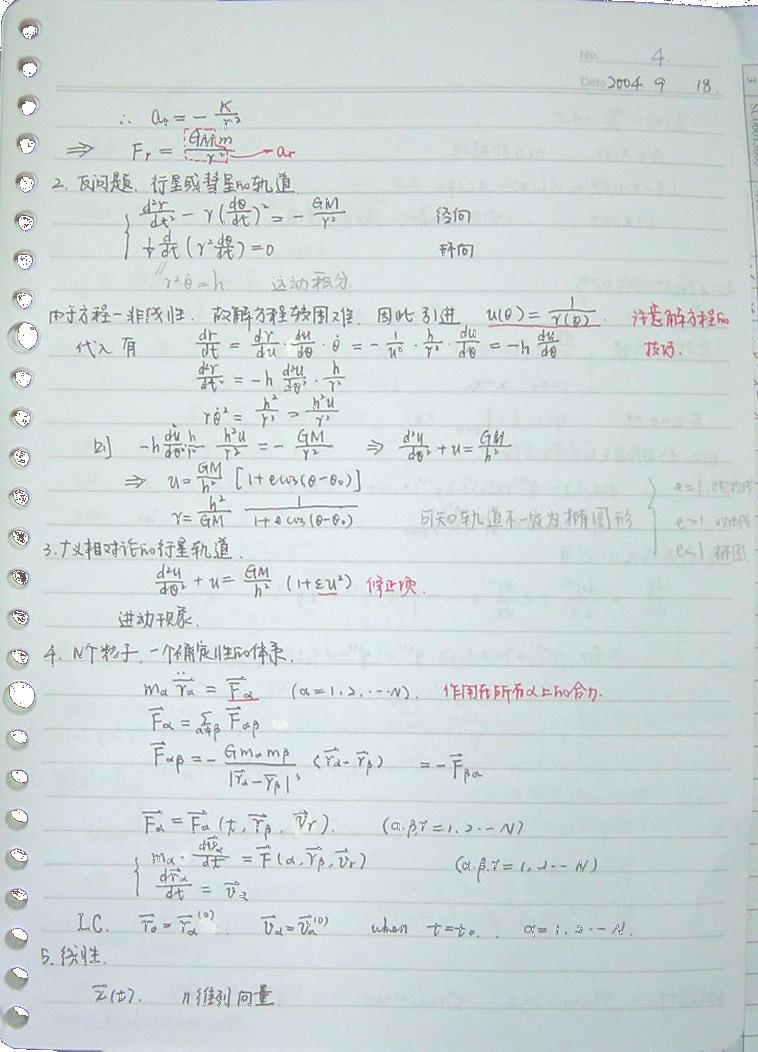 No. 4.
Date 2004 9 18.
∴ a_r = - K/r²
⇒ F_r = GMm/r² → a_r
2. 反问题. 行星或彗星的轨道.
d²r/dt² - r(dθ/dt)² = - GM/r² 径向
1/r d/dt (r² dθ/dt) = 0 环向
r²θ̇ = h 运动积分.
由于方程一非线性. 故解方程较困难. 因此引进 u(θ) = 1/r(θ). 注意解方程的
代入有 dr/dt = dr/du · du/dθ · θ̇ = - 1/u² · h/r² · du/dθ = -h du/dθ 技巧.
d²r/dt² = -h d²u/dθ² · h/r²
rθ̇² = h²/r³ = h²u/r²
则 -h d²u/dθ² h/r² - h²u/r² = - GM/r² ⇒ d²u/dθ² + u = GM/h²
⇒ u = GM/h² [1+ecos(θ-θ₀)] e=1. 抛物线
r = h²/GM 1/(1+e cos(θ-θ₀)) 可知轨道不一定为椭圆形 e>1 双曲线
e<1 椭圆.
3. 广义相对论的行星轨道.
d²u/dθ² + u = GM/h² (1+εu²) 修正项.
进动现象.
4. N个粒子. 一个确定性的体系.
m_α r̈_α = F_α (α=1,2,···N). 作用在所有α上的合力.
F_α = Σ_{α≠β} F_αβ
F_αβ = - G m_α m_β / |r_α - r_β|³ (r_α - r_β) = - F_βα
F_α = F_α (t, r_β, v_r). (α.β.r = 1, 2 ·· N)
m_α · dv_α/dt = F(α, r_β, v_r) (α.β.r = 1, 2 ·· N)
dr_α/dt = v_α
I.C. r_α = r_α⁽⁰⁾ v_α = v_α⁽⁰⁾ when t=t₀. α=1. 2. ·· N.
5. 线性.
z(t). n维列向量